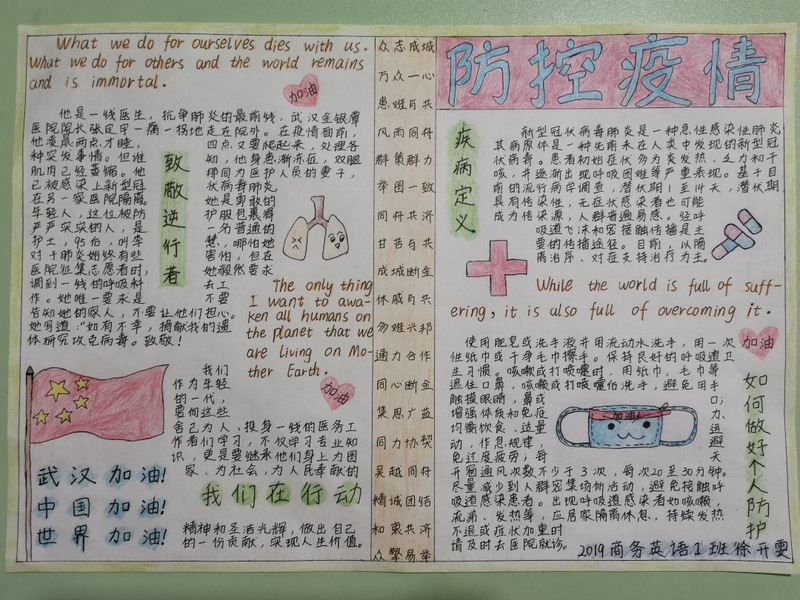 What we do for ourselves dies with us.
What we do for others and the world remains
and is immortal.
加油
他是一线医生，抗争肺炎的最前线，武汉金银潭
医院院长张定宇一瘸一拐地走在院外。在疫情面前，
他凌晨两点才睡，四点又要爬起来，处理各
种突发事情。但谁知，他身患渐冻症，双腿
肌肉已经萎缩。他
已被感染上新型冠状病毒肺炎，
在另一家医院隔离。她是勇敢的
年轻人，这位被防护服包裹得
严严实实的人，是一名普通的
护士，95后，叫李慧，哪怕她
对于肺炎始终有些害怕，但在
医院征集志愿者时，她毅然要求
调到一线的呼吸科去工
作。她唯一要求是不要
告知她的家人，不要让他们担心。
她写道：“如有不幸，捐献我的遗
体研究攻克病毒。致敬！
致敬逆行者
The only thing
I want to awa-
ken all humans on
the planet that we
are living on Mo-
ther Earth.
加油
我们
作为年轻
的一代，
要向这些
舍己为人、投身一线的医务工
作者们学习，不仅学习专业知
识，更是要继承他们身上为国
家、为社会，为人民奉献的
我们在行动
精神和圣洁光辉，做出自己
的一份贡献，实现人生价值。
武汉加油！
中国加油！
世界加油！
众志成城
万众一心
患难与共
风雨同舟
群策群力
举国一致
同舟共济
甘苦与共
成城断金
休戚与共
多难兴邦
通力合作
同心断金
集思广益
同力协契
吴越同舟
精诚团结
和衷共济
众擎易举
防控疫情
疾病定义
新型冠状病毒肺炎是一种急性感染性肺炎，
其病原体是一种先前未在人类中发现的新型冠
状病毒。患者初始症状多为发热、乏力和干
咳，并逐渐出现呼吸困难等严重表现。基于目
前的流行病学调查，潜伏期1至14天，潜伏期
具有传染性，无症状感染者也可能
成为传染源，人群普遍易感。经呼
吸道飞沫和密接触传播是主
要的传播途径。目前，以隔
离治疗、对症支持治疗为主。
While the world is full of suff-
ering, it is also full of overcoming it.
使用肥皂或洗手液并用流动水洗手，用一次
性纸巾或干净毛巾擦手。保持良好的呼吸道卫
生习惯。咳嗽或打喷嚏时，用纸巾、毛巾等
遮住口鼻，咳嗽或打喷嚏后洗手，避免用手
触摸眼睛，鼻或口；
增强体质和免疫力、
均衡饮食、适量运
动，作息规律，避
免过度疲劳；每天
开窗通风次数不少于3次，每次20至30分钟。
尽量减少到人群密集场所活动，避免接触呼
吸道感染患者。出现呼吸道感染者如咳嗽，
流涕、发热等，应居家隔离休息，持续发热
不退或症状加重时
请及时去医院就诊。
加油
加油
如何做好个人防护
2019商务英语1班徐开雯